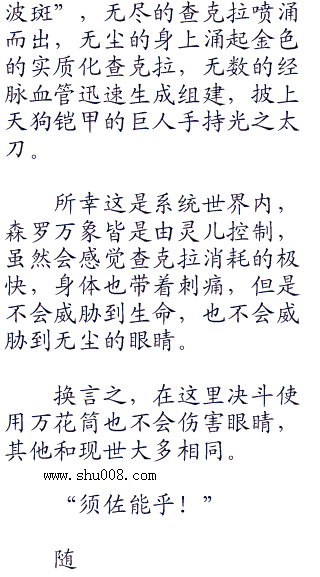 波斑”，无尽的查克拉喷涌
而出，无尘的身上涌起金色
的实质化查克拉，无数的经
脉血管迅速生成组建，披上
天狗铠甲的巨人手持光之太
刀。
所幸这是系统世界内，
森罗万象皆是由灵儿控制，
虽然会感觉查克拉消耗的极
快，身体也带着刺痛，但是
不会威胁到生命，也不会威
胁到无尘的眼睛。
换言之，在这里决斗使
用万花筒也不会伤害眼睛，
其他和现世大多相同。
www.shu008.com
“须佐能乎！”
随